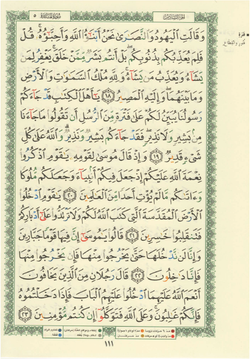 وَقَالَتِ الْيَهُودُ وَالنَّصَٰرَىٰ نَحْنُ أَبْنَٰٓؤُا۟ اللَّهِ وَأَحِبَّٰٓؤُهُۥ ۚ قُلْ
فَلِمَ يُعَذِّبُكُم بِذُنُوبِكُم ۖ بَلْ أَنتُم بَشَرٌ مِّمَّنْ خَلَقَ ۚ يَغْفِرُ لِمَن
يَشَآءُ وَيُعَذِّبُ مَن يَشَآءُ ۚ وَلِلَّهِ مُلْكُ السَّمَٰوَٰتِ وَالْأَرْضِ
وَمَا بَيْنَهُمَا ۖ وَإِلَيْهِ الْمَصِيرُ ١٨ يَٰٓأَهْلَ الْكِتَٰبِ قَدْ جَآءَكُمْ
رَسُولُنَا يُبَيِّنُ لَكُمْ عَلَىٰ فَتْرَةٍ مِّنَ الرُّسُلِ أَن تَقُولُوا۟ مَا جَآءَنَا
مِنۢ بَشِيرٍ وَلَا نَذِيرٍ ۖ فَقَدْ جَآءَكُم بَشِيرٌ وَنَذِيرٌ ۗ وَاللَّهُ عَلَىٰ كُلِّ
شَىْءٍ قَدِيرٌ ١٩ وَإِذْ قَالَ مُوسَىٰ لِقَوْمِهِۦ يَٰقَوْمِ اذْكُرُوا۟
نِعْمَةَ اللَّهِ عَلَيْكُمْ إِذْ جَعَلَ فِيكُمْ أَنۢبِيَآءَ وَجَعَلَكُم مُّلُوكًا
وَءَاتَىٰكُم مَّا لَمْ يُؤْتِ أَحَدًا مِّنَ الْعَٰلَمِينَ ٢٠ يَٰقَوْمِ ادْخُلُوا۟
الْأَرْضَ الْمُقَدَّسَةَ الَّتِى كَتَبَ اللَّهُ لَكُمْ وَلَا تَرْتَدُّوا۟ عَلَىٰٓ أَدْبَارِكُمْ
فَتَنقَلِبُوا۟ خَٰسِرِينَ ٢١ قَالُوا۟ يَٰمُوسَىٰٓ إِنَّ فِيهَا قَوْمًا جَبَّارِينَ
وَإِنَّا لَن نَّدْخُلَهَا حَتَّىٰ يَخْرُجُوا۟ مِنْهَا فَإِن يَخْرُجُوا۟ مِنْهَا
فَإِنَّا دَٰخِلُونَ ٢٢ قَالَ رَجُلَانِ مِنَ الَّذِينَ يَخَافُونَ
أَنْعَمَ اللَّهُ عَلَيْهِمَا ادْخُلُوا۟ عَلَيْهِمُ الْبَابَ فَإِذَا دَخَلْتُمُوهُ
فَإِنَّكُمْ غَٰلِبُونَ ۚ وَعَلَى اللَّهِ فَتَوَكَّلُوٓا۟ إِن كُنتُم مُّؤْمِنِينَ ٢٣
١١١